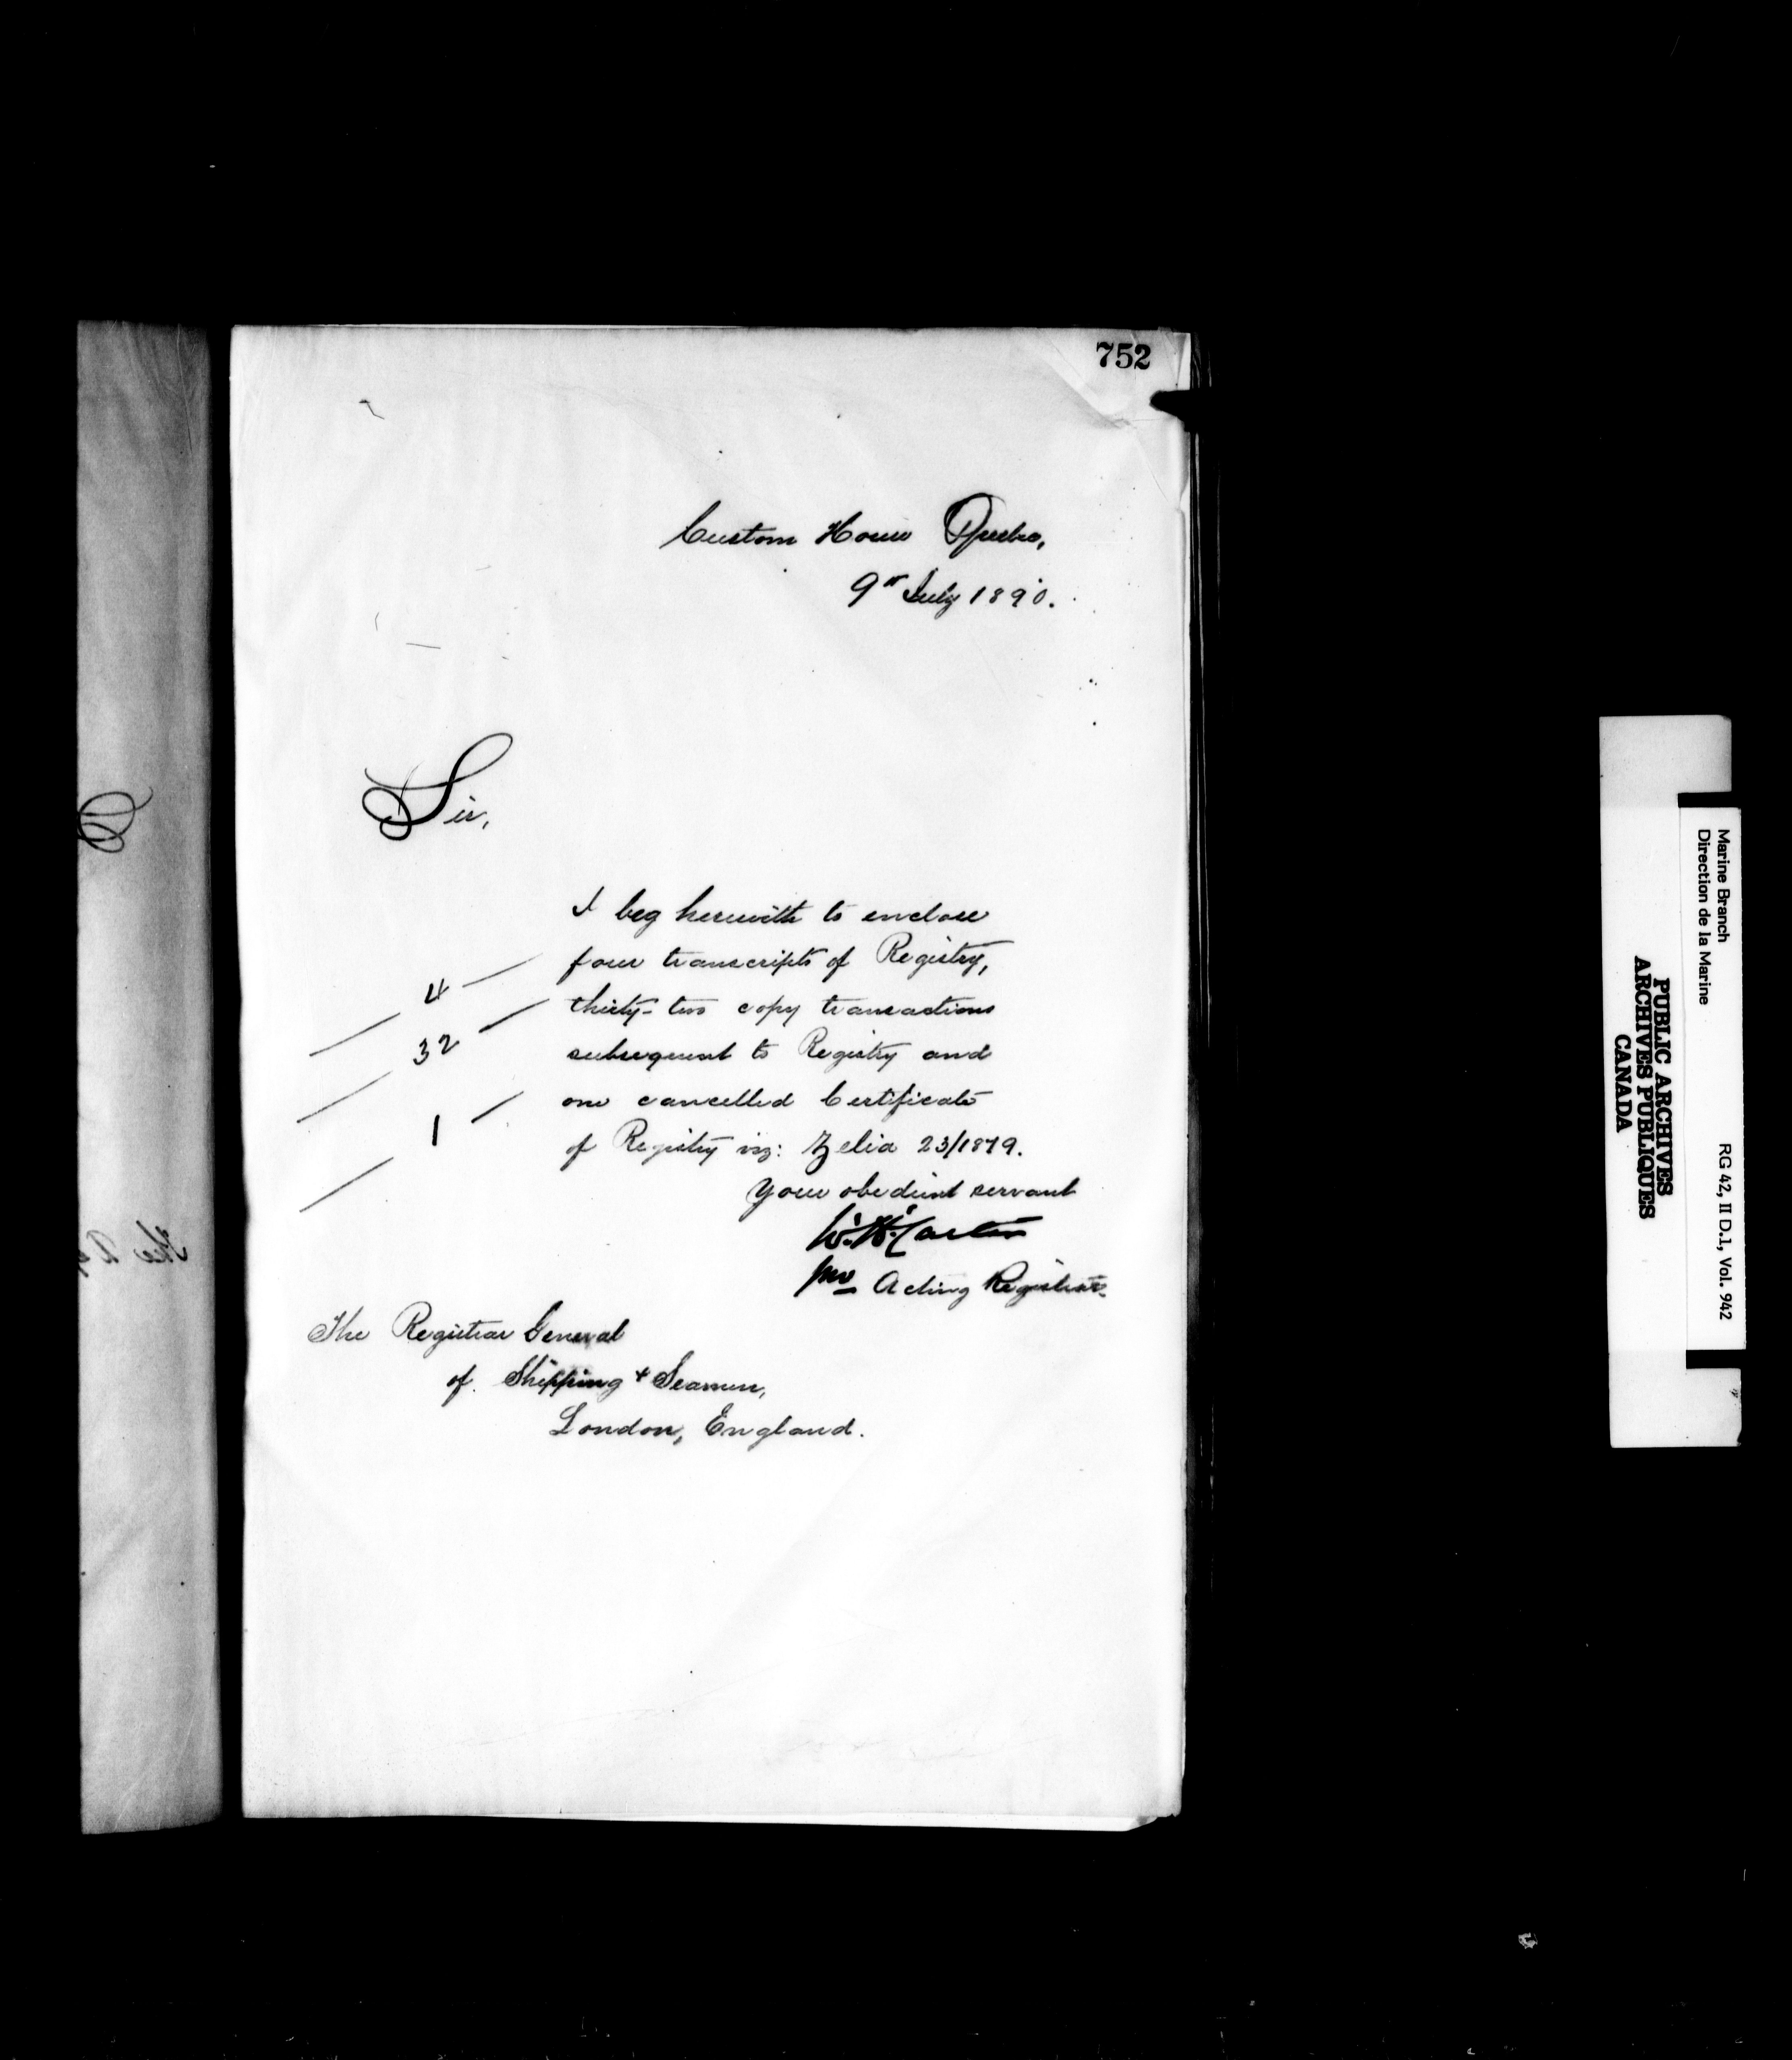 752
Custom House Quebec,
9th July 1890.
Sir,
I beg herewith to enclose
four transcripts of Registry,
4
thirty-two copy transactions
32
subsequent to Registry and
one cancelled Certificate
1
of Registry viz: Zelia 23/1879.
Your obedient servant
W. H. Carter
Acting Registrar.
The Registrar General
of Shipping & Seamen,
London, England.
The
Marine Branch
Direction de la Marine
RG 42, II D.1, Vol. 942
PUBLIC ARCHIVES
ARCHIVES PUBLIQUES
CANADA